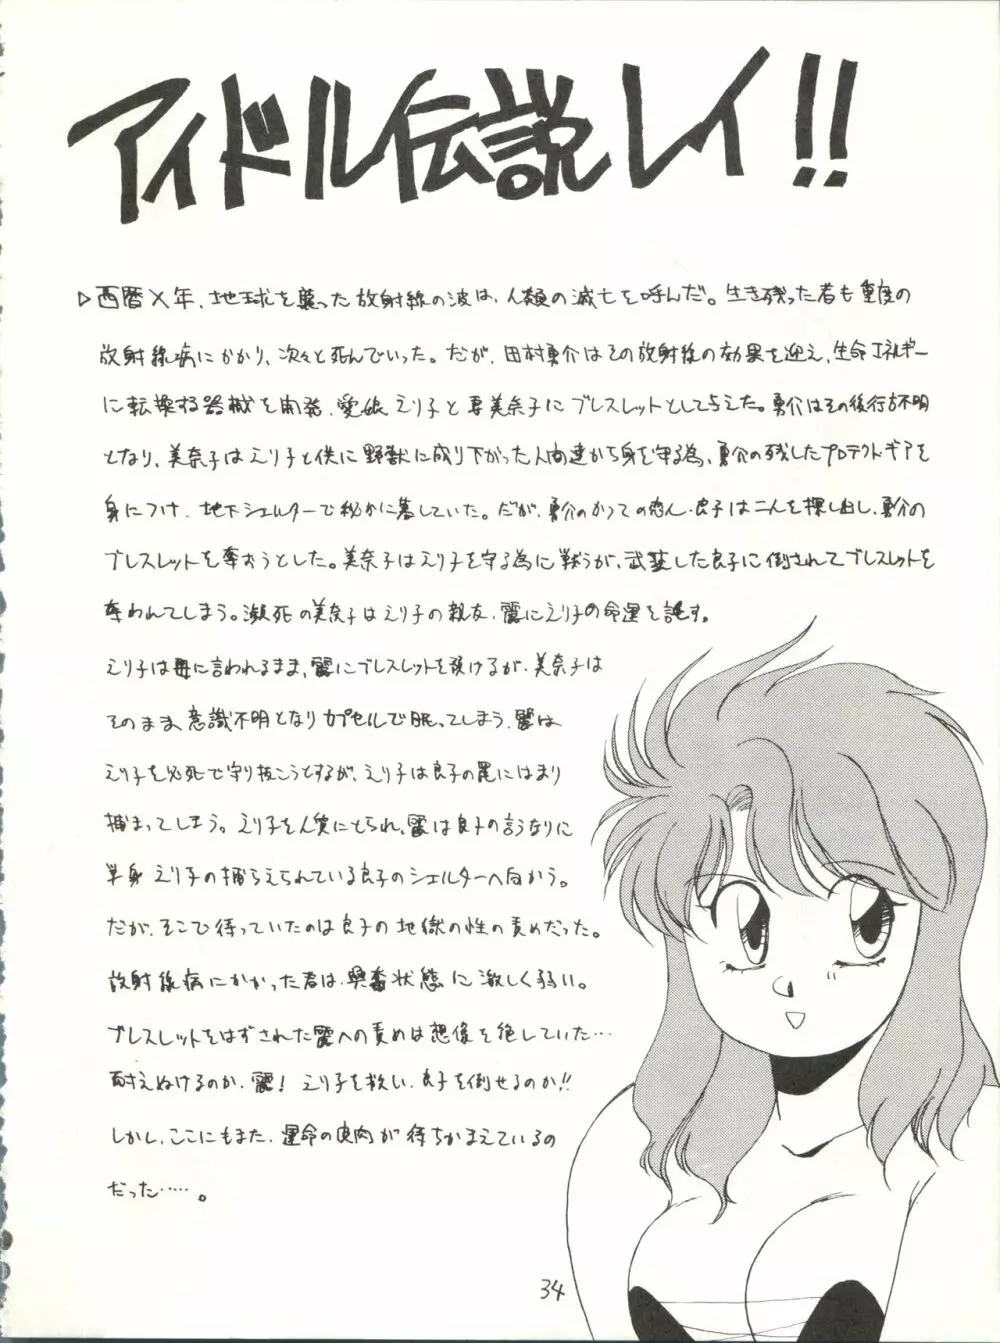 アイドル伝説レイ!!
▷西暦X年、地球を襲った放射線の波は、人類の滅亡を呼んだ。生き残った者も重度の
放射線病にかかり、次々と死んでいった。だが、田村勇介はその放射線の効果を迎え、生命エネルギー
に転換する器械を開発、愛娘えり子と妻美奈子にブレスレットとして与えた。勇介はその後行方不明
となり、美奈子はえり子と供に野獣に成り下がった人間達から身を守る為、勇介の残したプロテクトギアを
身につけ、地下シェルターで秘かに暮していた。だが、勇介のかつての恋人・良子は二人を探し出し、勇介の
ブレスレットを奪おうとした。美奈子はえり子を守る為に戦うが、武装した良子に倒されてブレスレットを
奪われてしまう。瀕死の美奈子はえり子の親友、麗にえり子の命運を託す。
えり子は母に言われるまま、麗にブレスレットを預けるが、美奈子は
そのまま意識不明となりカプセルで眠ってしまう。麗は
えり子を必死で守り抜こうとするが、えり子は良子の罠にはまり
捕まってしまう。えり子を人質にとられ、麗は良子の言うなりに
単身えり子の捕らえられている良子のシェルターへ向かう。
だが、そこで待っていたのは良子の地獄の性の責めだった。
放射線病にかかった者は、興奮状態に激しく弱い。
ブレスレットをはずされた麗への責めは想像を絶していた…
耐えぬけるのか、麗! えり子を救い、良子を倒せるのか!!
しかし、ここにもまた、運命の皮肉が待ちかまえているの
だった……。
34